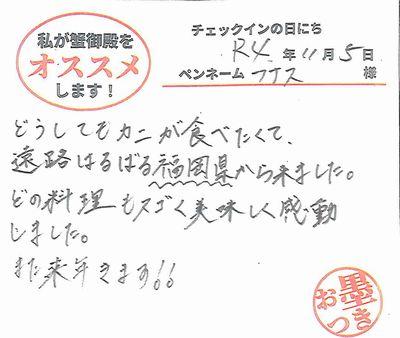 私が蟹御殿を
オススメ
します！
チェックインの日にち
R4.年11月5日
ペンネーム フナス 様
どうしてもカニが食べたくて、
遠路はるばる福岡県から来ました。
どの料理もスゴく美味しく感動
しました。
また来年きます!!
お墨つき